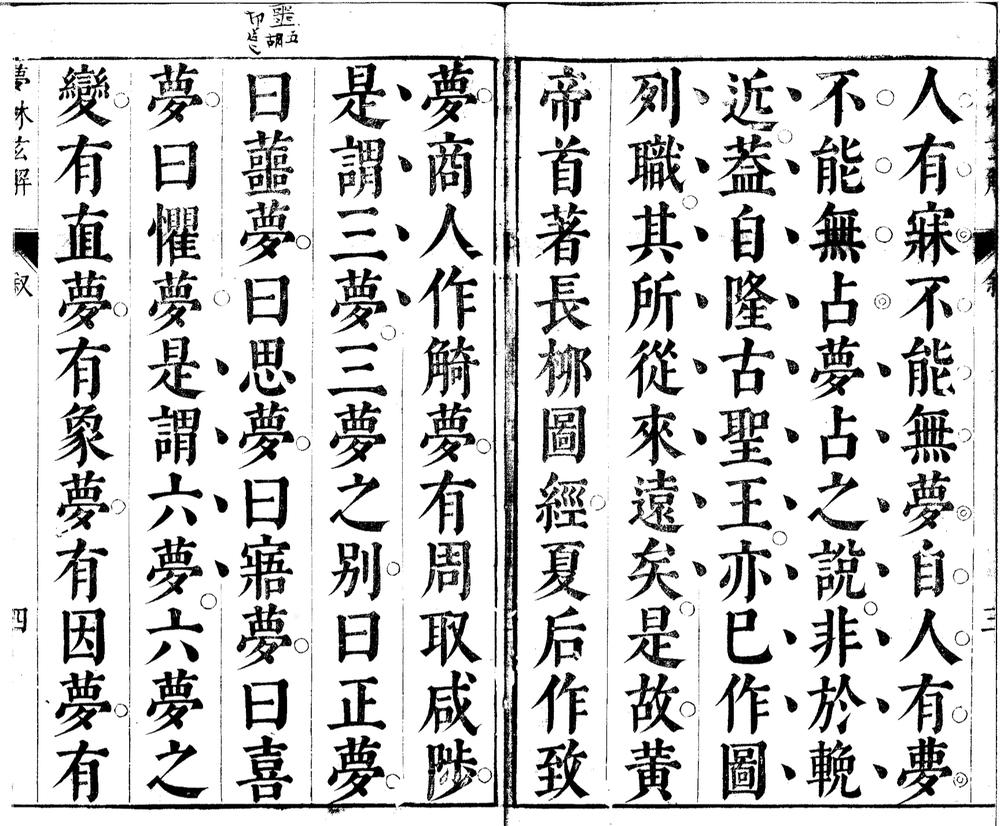 人有寐不能無夢自人有夢
不能無占夢占之說非於輓
近葢自隆古聖王亦巳作圖
列職其所從來遠矣是故黃
帝首著長柳圖經夏后作致
三
夢商人作觭夢有周取咸陟
是謂三夢三夢之別曰正夢
曰蘁夢曰思夢曰寤夢曰喜
夢曰懼夢是謂六夢六夢之
變有直夢有象夢有因夢有
夢林玄解
叙
四